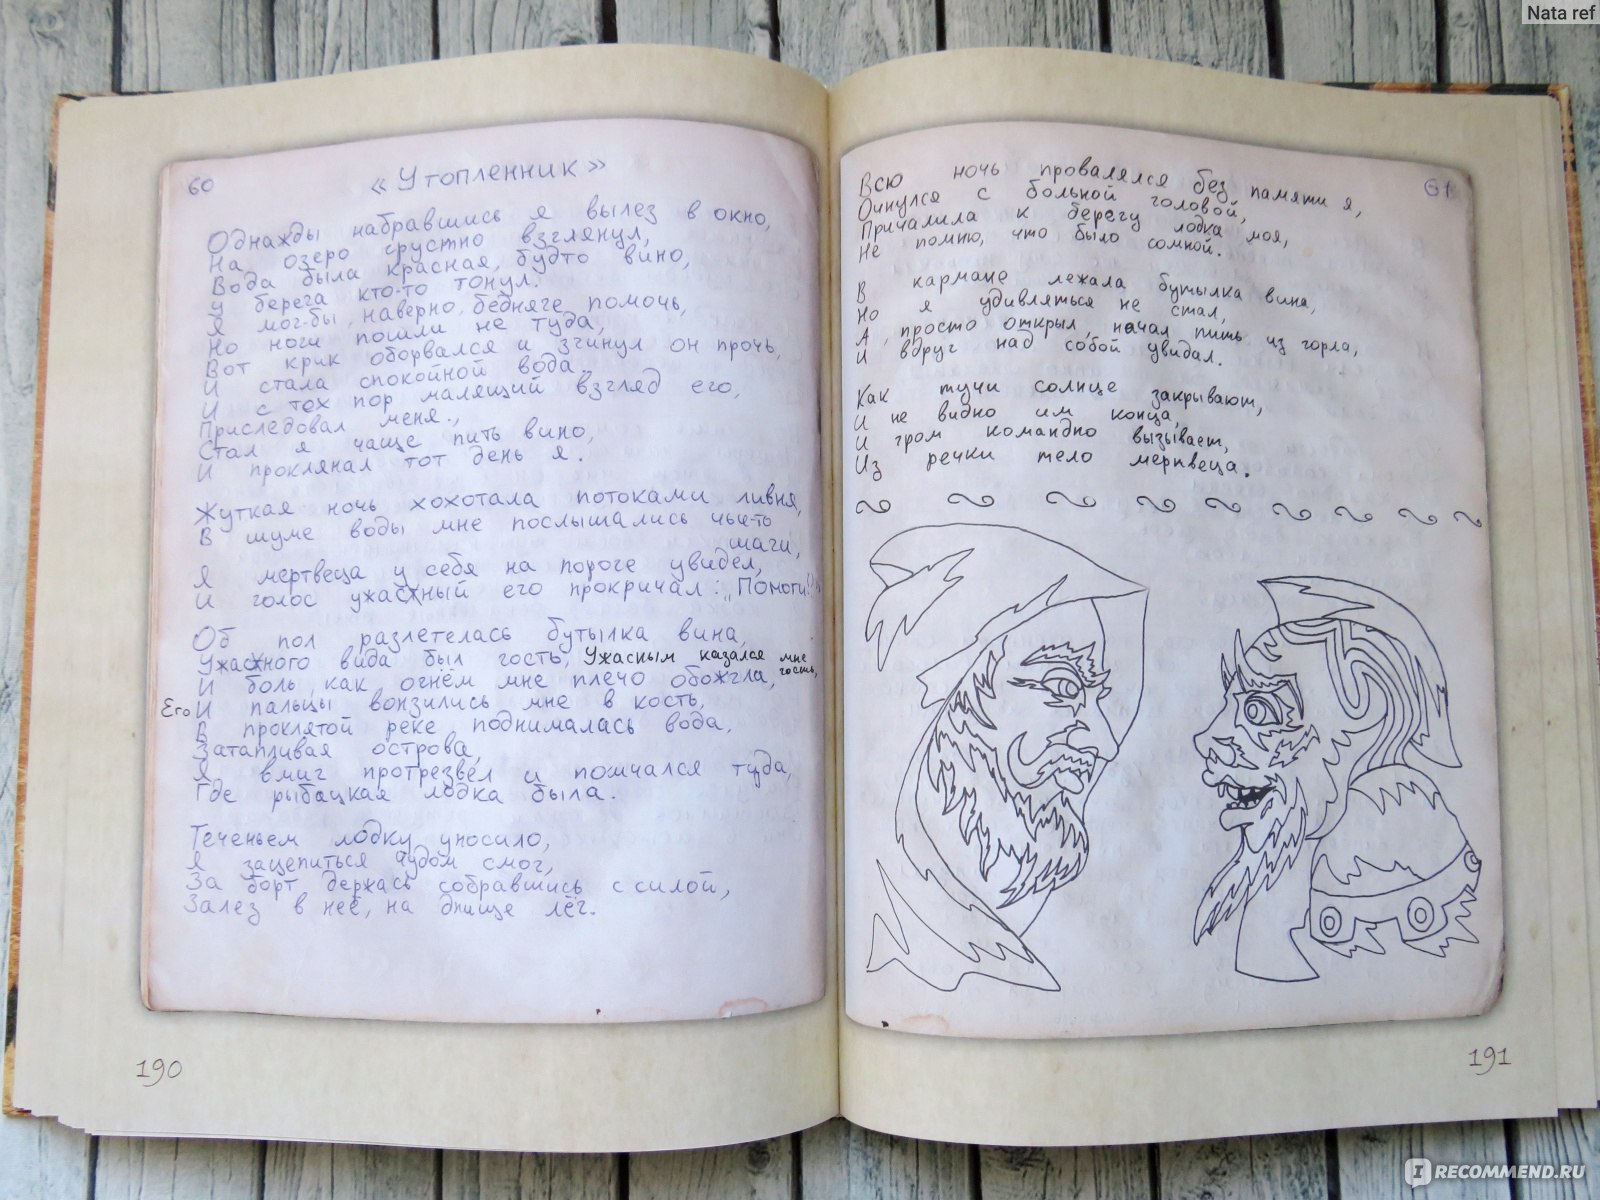 Nata ref
60
« Утопленник »
Однажды набравшись я вылез в окно,
На озеро грустно взглянул,
Вода была красная, будто вино,
У берега кто-то тонул.
Я мог-бы, наверно, бедняге помочь,
Но ноги пошли не туда,
Вот крик оборвался и згинул он прочь,
И стала спокойной вода.
И с тех пор малящий взгляд его,
Приследовал меня.,
Стал я чаще пить вино,
И проклянал тот день я.
Жуткая ночь хохотала потоками ливня,
В шуме воды мне послышались чьи-то
шаги,
Я мертвеца у себя на пороге увидел,
И голос ужасный его прокричал: „Помоги!"
Об пол разлетелась бутылка вина,
Ужасного вида был гость, Ужасным казался мне
гость,
И боль, как огнём мне плечо обожгла,
Его И пальцы вонзились мне в кость,
В проклятой реке поднималась вода,
Затапливая острова,
Я вмиг протрезвел и помчался туда,
Где рыбацкая лодка была.
Теченьем лодку уносило,
Я зацепиться чудом смог,
За борт держась собравшись с силой,
Залез в неё, на днище лёг.
190
61
Всю ночь провалялся без памяти я,
Очнулся с больной головой,
Причалила к берегу лодка моя,
Не помню, что было сомной.
В кармане лежала бутылка вина,
Но я удивляться не стал,
А, просто открыл, начал пить из горла,
И вдруг над собой увидал.
Как тучи солнце закрывают,
И не видно им конца,
И гром командно вызывает,
Из речки тело мертвеца.
191
IRECOMMEND.RU